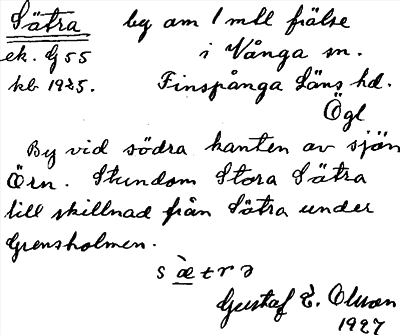 Sätra by om 1 mtl frälse
ek. G 55 i Vånga sn.
kb 1925. Finspånga Läns hd.
Ögl
By vid södra kanten av sjön
Örn. Stundom Stora Sätra
till skillnad från Sätra under
Grensholmen.
s æ̀ t r ə
Gustaf E. Olsson
1927